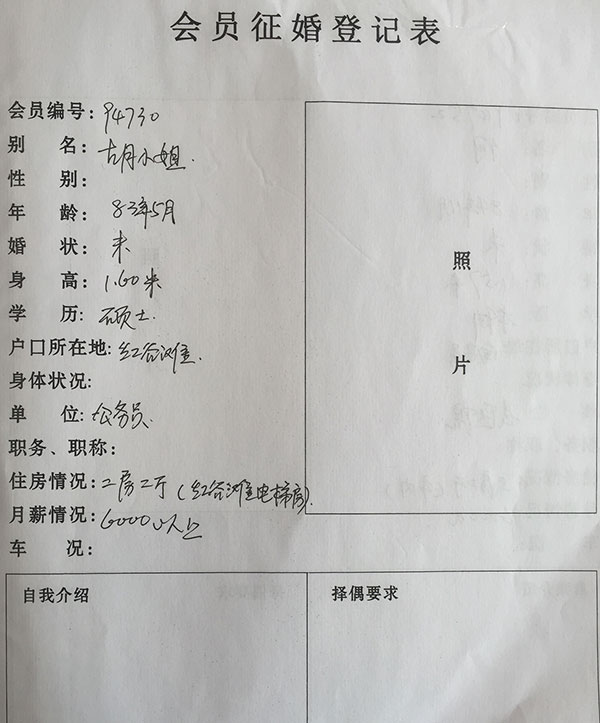 会员征婚登记表
会员编号: 94730
别 名: 胡小姐.
性 别:
年 龄: 83年5月
婚 状: 未
身 高: 1.60米
学 历: 硕士
户口所在地: 红谷滩.
身体状况:
单 位: 公务员.
职务、职称:
住房情况: 二房二厅(红谷滩电梯房).
月薪情况: 6000以上
车 况:
照
片
自我介绍
择偶要求